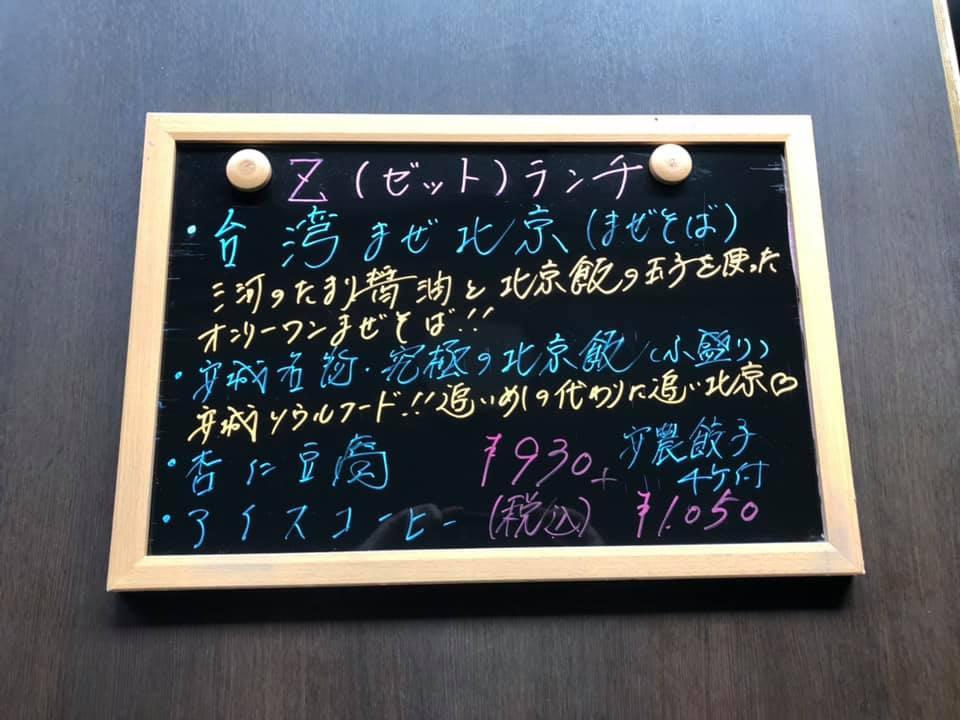 Z(ゼット)ランチ
・台湾まぜ北京(まぜそば)
三河のたまり醤油と北京飯の玉子を使った
オンリーワンまぜそば!!
・安城名物・究極の北京飯(小盛り)
安城ソウルフード!!追いめしの代わりに追い北京♡
・杏仁豆腐 ¥930+安農餃子
4ケ付
・アイスコーヒー (税込) ¥1.050